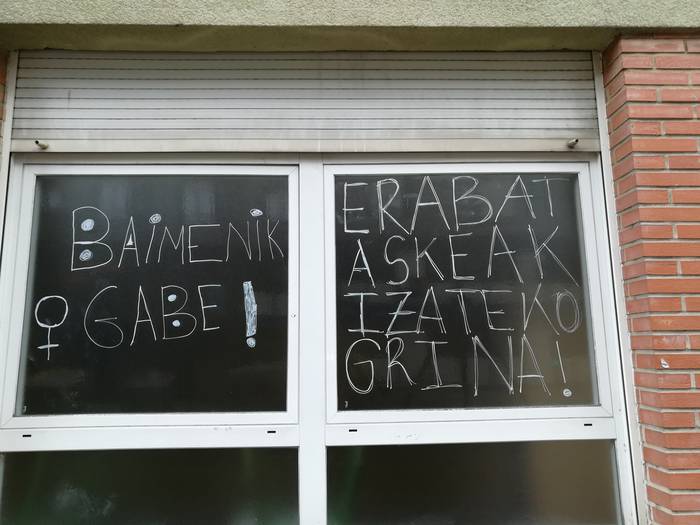 BAIMENIK
♀ GABE!
ERABAT
ASKEAK
IZATEKO
GRINA!